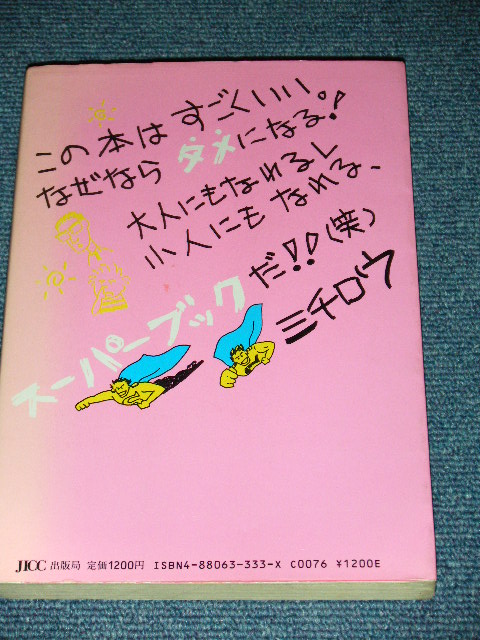 この本はすごくいい。
なぜなら ダメになる!
大人にもなれるし
小人にもなれる、
スーパーブックだ!!(笑)
ミチロウ
JICC 出版局 定価1200円 ISBN4-88063-333-X C0076 ¥1200E